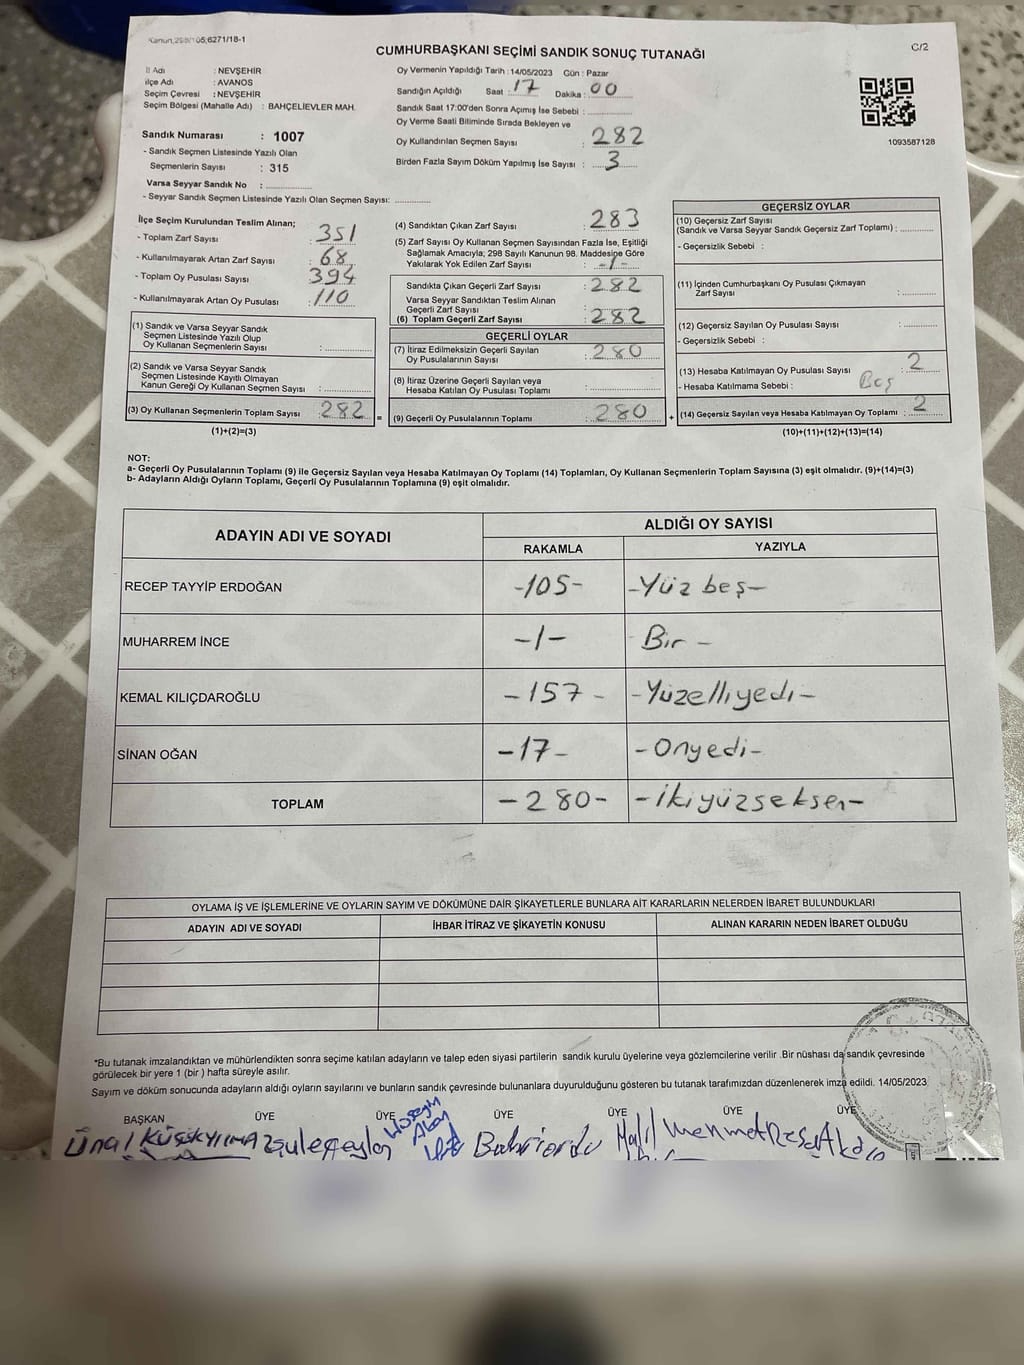 Kanun,298/105;6271/18-1
C/2
CUMHURBAŞKANI SEÇİMİ SANDIK SONUÇ TUTANAĞI
İl Adı : NEVŞEHİR
İlçe Adı : AVANOS
Seçim Çevresi : NEVŞEHİR
Seçim Bölgesi (Mahalle Adı) : BAHÇELİEVLER MAH.
Sandık Numarası : 1007
- Sandık Seçmen Listesinde Yazılı Olan
Seçmenlerin Sayısı : 315
Varsa Seyyar Sandık No :
- Seyyar Sandık Seçmen Listesinde Yazılı Olan Seçmen Sayısı:
Oy Vermenin Yapıldığı Tarih : 14/05/2023 Gün : Pazar
Sandığın Açıldığı Saat : 17 Dakika : 00
Sandık Saat 17:00'den Sonra Açımış İse Sebebi :
Oy Verme Saati Bitiminde Sırada Bekleyen ve
Oy Kullandırılan Seçmen Sayısı : 282
Birden Fazla Sayım Döküm Yapılmış İse Sayısı : 3
1093587128
İlçe Seçim Kurulundan Teslim Alınan;
- Toplam Zarf Sayısı : 351
- Kullanılmayarak Artan Zarf Sayısı : 68
- Toplam Oy Pusulası Sayısı : 394
- Kullanılmayarak Artan Oy Pusulası : 110
(1) Sandık ve Varsa Seyyar Sandık
Seçmen Listesinde Yazılı Olup
Oy Kullanan Seçmenlerin Sayısı :
(2) Sandık ve Varsa Seyyar Sandık
Seçmen Listesinde Kayıtlı Olmayan
Kanun Gereği Oy Kullanan Seçmen Sayısı :
(3) Oy Kullanan Seçmenlerin Toplam Sayısı : 282 =
(1)+(2)=(3)
(4) Sandıktan Çıkan Zarf Sayısı : 283
(5) Zarf Sayısı Oy Kullanan Seçmen Sayısından Fazla İse, Eşitliği
Sağlamak Amacıyla; 298 Sayılı Kanunun 98. Maddesine Göre
Yakılarak Yok Edilen Zarf Sayısı : -1-
Sandıkta Çıkan Geçerli Zarf Sayısı : 282
Varsa Seyyar Sandıktan Teslim Alınan
Geçerli Zarf Sayısı :
(6) Toplam Geçerli Zarf Sayısı : 282
GEÇERLİ OYLAR
(7) İtiraz Edilmeksizin Geçerli Sayılan
Oy Pusulalarının Sayısı : 280
(8) İtiraz Üzerine Geçerli Sayılan veya
Hesaba Katılan Oy Pusulası Toplamı :
(9) Geçerli Oy Pusulalarının Toplamı : 280 +
GEÇERSİZ OYLAR
(10) Geçersiz Zarf Sayısı
(Sandık ve Varsa Seyyar Sandık Geçersiz Zarf Toplamı) :
- Geçersizlik Sebebi :
(11) İçinden Cumhurbaşkanı Oy Pusulası Çıkmayan
Zarf Sayısı :
(12) Geçersiz Sayılan Oy Pusulası Sayısı :
- Geçersizlik Sebebi :
(13) Hesaba Katılmayan Oy Pusulası Sayısı : 2
- Hesaba Katılmama Sebebi : Boş
(14) Geçersiz Sayılan veya Hesaba Katılmayan Oy Toplamı : 2
(10)+(11)+(12)+(13)=(14)
NOT:
a- Geçerli Oy Pusulalarının Toplamı (9) ile Geçersiz Sayılan veya Hesaba Katılmayan Oy Toplamı (14) Toplamları, Oy Kullanan Seçmenlerin Toplam Sayısına (3) eşit olmalıdır. (9)+(14)=(3)
b- Adayların Aldığı Oyların Toplamı, Geçerli Oy Pusulalarının Toplamına (9) eşit olmalıdır.
ADAYIN ADI VE SOYADI
ALDIĞI OY SAYISI
RAKAMLA YAZIYLA
RECEP TAYYİP ERDOĞAN -105- -Yüz beş-
MUHARREM İNCE -1- Bir -
KEMAL KILIÇDAROĞLU -157- -Yüzelliyedi-
SİNAN OĞAN -17- -Onyedi-
TOPLAM -280- -İkiyüzseksen-
OYLAMA İŞ VE İŞLEMLERİNE VE OYLARIN SAYIM VE DÖKÜMÜNE DAİR ŞİKAYETLERLE BUNLARA AİT KARARLARIN NELERDEN İBARET BULUNDUKLARI
ADAYIN ADI VE SOYADI İHBAR İTİRAZ VE ŞİKAYETİN KONUSU ALINAN KARARIN NEDEN İBARET OLDUĞU
*Bu tutanak imzalandıktan ve mühürlendikten sonra seçime katılan adayların ve talep eden siyasi partilerin sandık kurulu üyelerine veya gözlemcilerine verilir .Bir nüshası da sandık çevresinde
görülecek bir yere 1 (bir ) hafta süreyle asılır.
Sayım ve döküm sonucunda adayların aldığı oyların sayılarını ve bunların sandık çevresinde bulunanlara duyurulduğunu gösteren bu tutanak tarafımızdan düzenlenerek imza edildi. 14/05/2023
BAŞKAN ÜYE ÜYE ÜYE ÜYE ÜYE ÜYE
Ünal Hüseyin Halil Mehmet